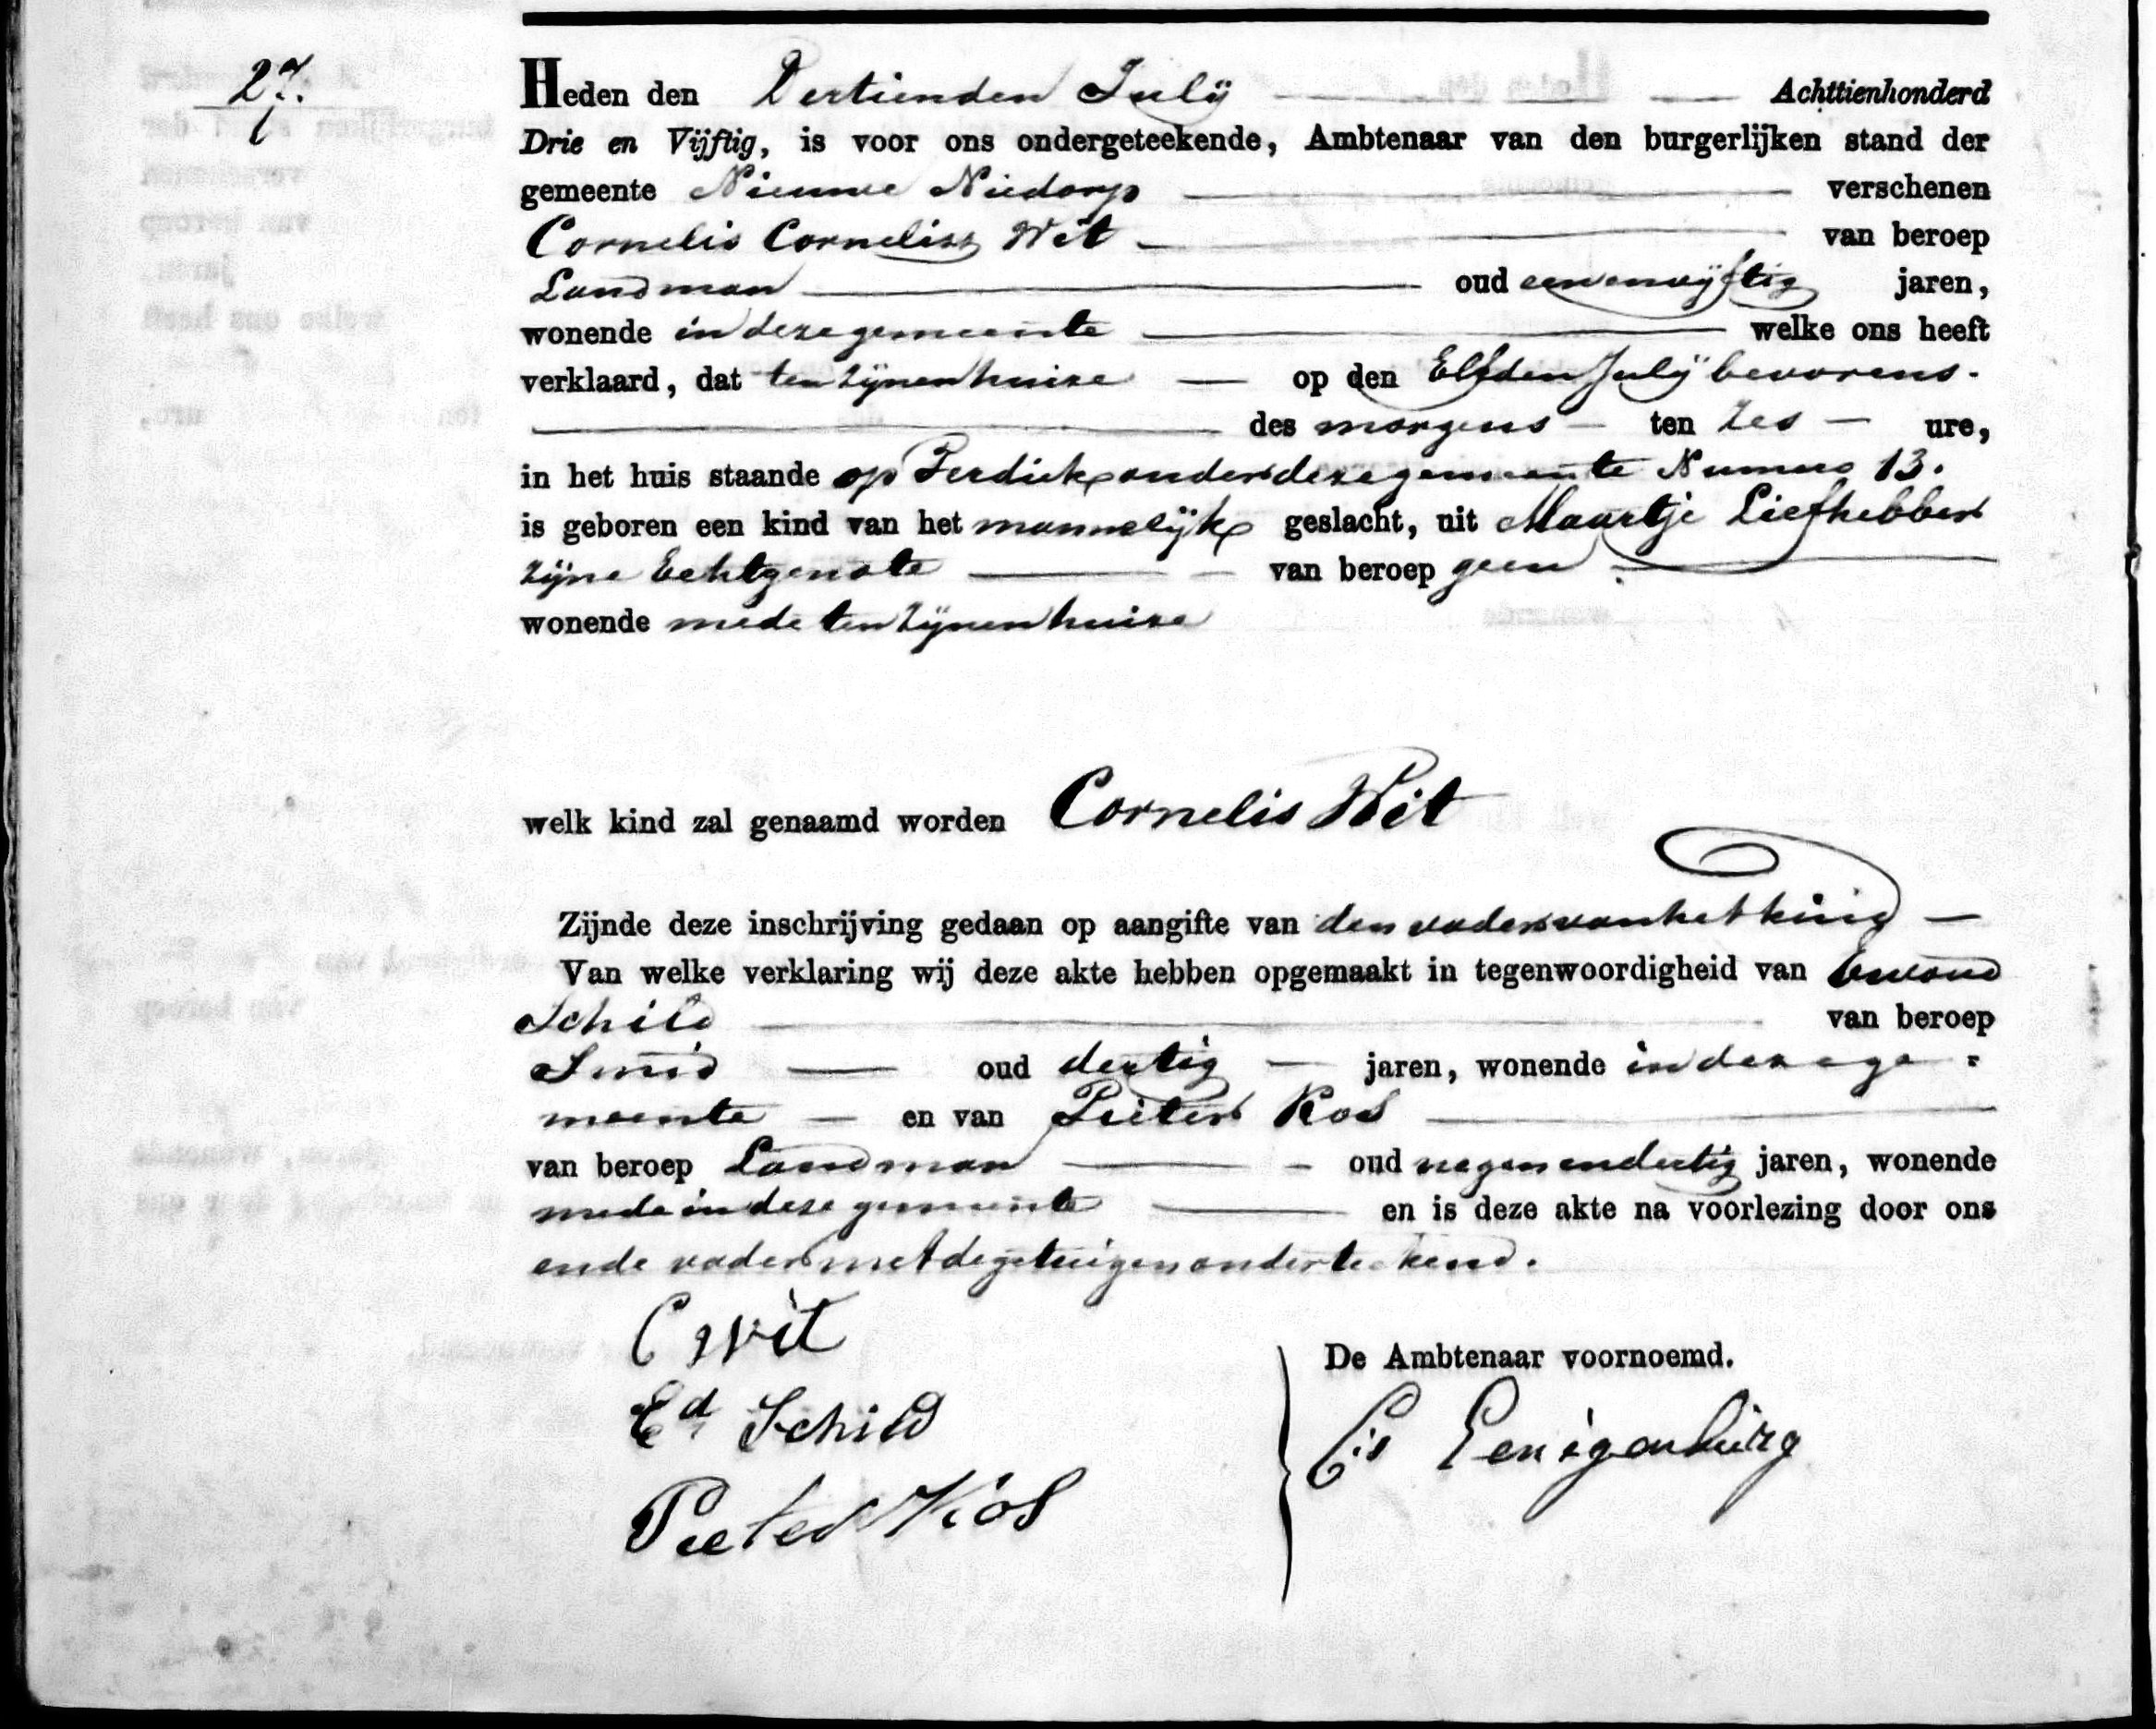 27.
Heden den Dertienden Julij Achttienhonderd
Drie en Vijftig, is voor ons ondergeteekende, Ambtenaar van den burgerlijken stand der
gemeente Nieuwe Niedorp verschenen
Cornelis Cornelisz Wit van beroep
Landman oud eenenvijftig jaren,
wonende in deze gemeente welke ons heeft
verklaard, dat ten zijnen huize op den Elfden Julij bevorens.
des morgens ten zes ure,
in het huis staande op Terdiek onder deze gemeente Numero 13.
is geboren een kind van het mannelijk geslacht, uit Maartje Liefhebber
zijne Echtgenote van beroep geen
wonende mede ten zijnen huize
welk kind zal genaamd worden Cornelis Wit
Zijnde deze inschrijving gedaan op aangifte van den vader van het kind
Van welke verklaring wij deze akte hebben opgemaakt in tegenwoordigheid van Ewoud
Schild van beroep
Smid oud dertig jaren, wonende in deze ge=
meente en van Pieter Kos
van beroep Landman oud negenendertig jaren, wonende
mede in deze gemeente en is deze akte na voorlezing door ons
en de vader met de getuigen onderteekend.
C Wit
De Ambtenaar voornoemd.
Ed Schild
Cs Eenigenburg
Pieter Kos